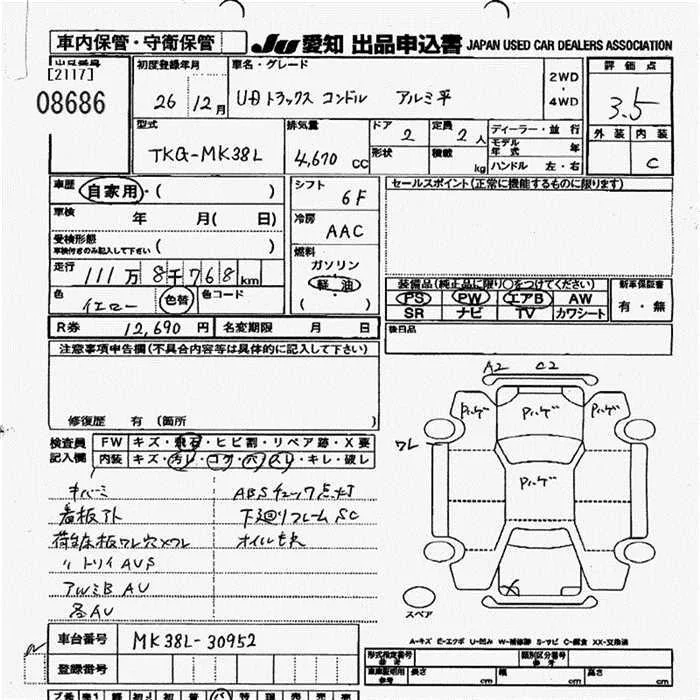 車内保管・守衛保管
JU 愛知 出品申込書 JAPAN USED CAR DEALERS ASSOCIATION
出品番号
[2117]
08686
初度登録年月
26 12月
車名・グレード
UDトラックス コンドル アルミ平
2WD
・
4WD
評価点
3.5
外装 内装
C
型式
TKG-MK38L
排気量
4,670 cc
ドア 2
形状
定員 2人
積載 kg
ディーラー・並行
モデル年式 年
ハンドル 左・右
車歴 自家用・( )
車検 年 月( 日)
受検形態
車検付きのみ記入して下さい ( )
走行 111万8千768km
色 イエロー 色替 色コード
シフト 6F
冷房 AAC
燃料
ガソリン
軽油
( )
セールスポイント(正常に機能するものに限ります)
装備品(純正品に限り○をつけてください)
PS PW エアB AW
SR ナビ TV カワシート
新車保証書
有・無
R券 12,690円 名変期限 月 日
後日品
注意事項申告欄(不具合内容等は具体的に記入して下さい)
修復歴 有(箇所 )
検査員
記入欄
FW キズ・飛石・ヒビ割・リペア跡・X要
内装 キズ・汚レ・コゲ・穴・スレ・キレ・破レ
キバミ
看板アト
荷台床板ワレ穴メクレ
〃トリイAUS
アルミBAU
各AU
ABSチェック点灯
下廻りフレームSC
オイルモレ
A2 C2
Pハゲ Pハゲ Pハゲ
ワレ
Pハゲ
X
スペア
A-キズ E-エクボ U-凹み W-補修跡 S-サビ C-腐食 XX-交換済
車台番号 MK38L-30952
登録番号
形式指定番号
参考
類別区分番号
参考
車庫証明用
参考
長さ cm 幅 cm 高さ cm